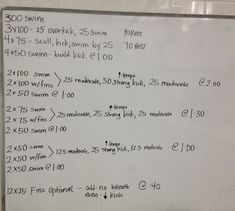 300 swim
3x100 - 25 overkick, 25 swim 10 Rest
4x75 - scull, kick, swim by 25 10 Rest
4x50 swim - build kick @ 1:00
↑tempo
2x100 swim
2x100 w/fins > 25 moderate, 50 strong kick, 25 moderate @ 2:00
2x50 swim @ 1:00
↑tempo
2x75 swim
2x75 w/fins > 25 moderate, 25 strong kick, 25 moderate @ 1:30
2x50 swim @ 1:00
↑tempo
2x50 swim
2x50 w/fins > 12.5 moderate, 25 strong kick, 12.5 moderate @ 1:00
2x50 swim @ 1:00
12x25 Fins Optional - odd - no breath @ :40
even - ↓ kick